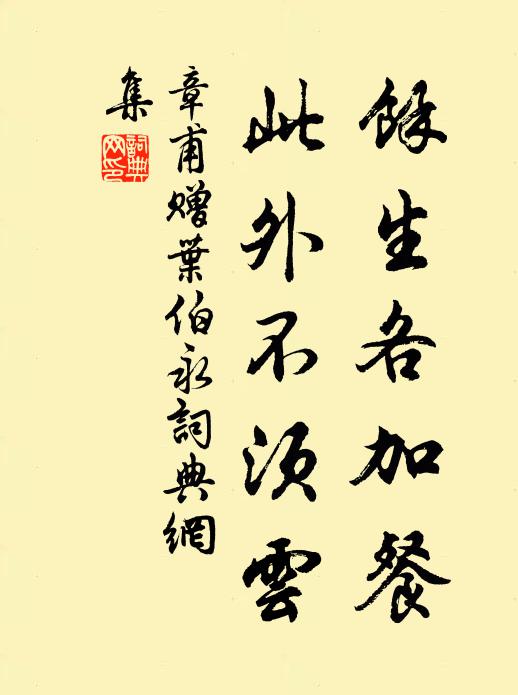 餘生各加餐
此外不須雲
章甫贈葉伯永詞典網
集
詞典網印